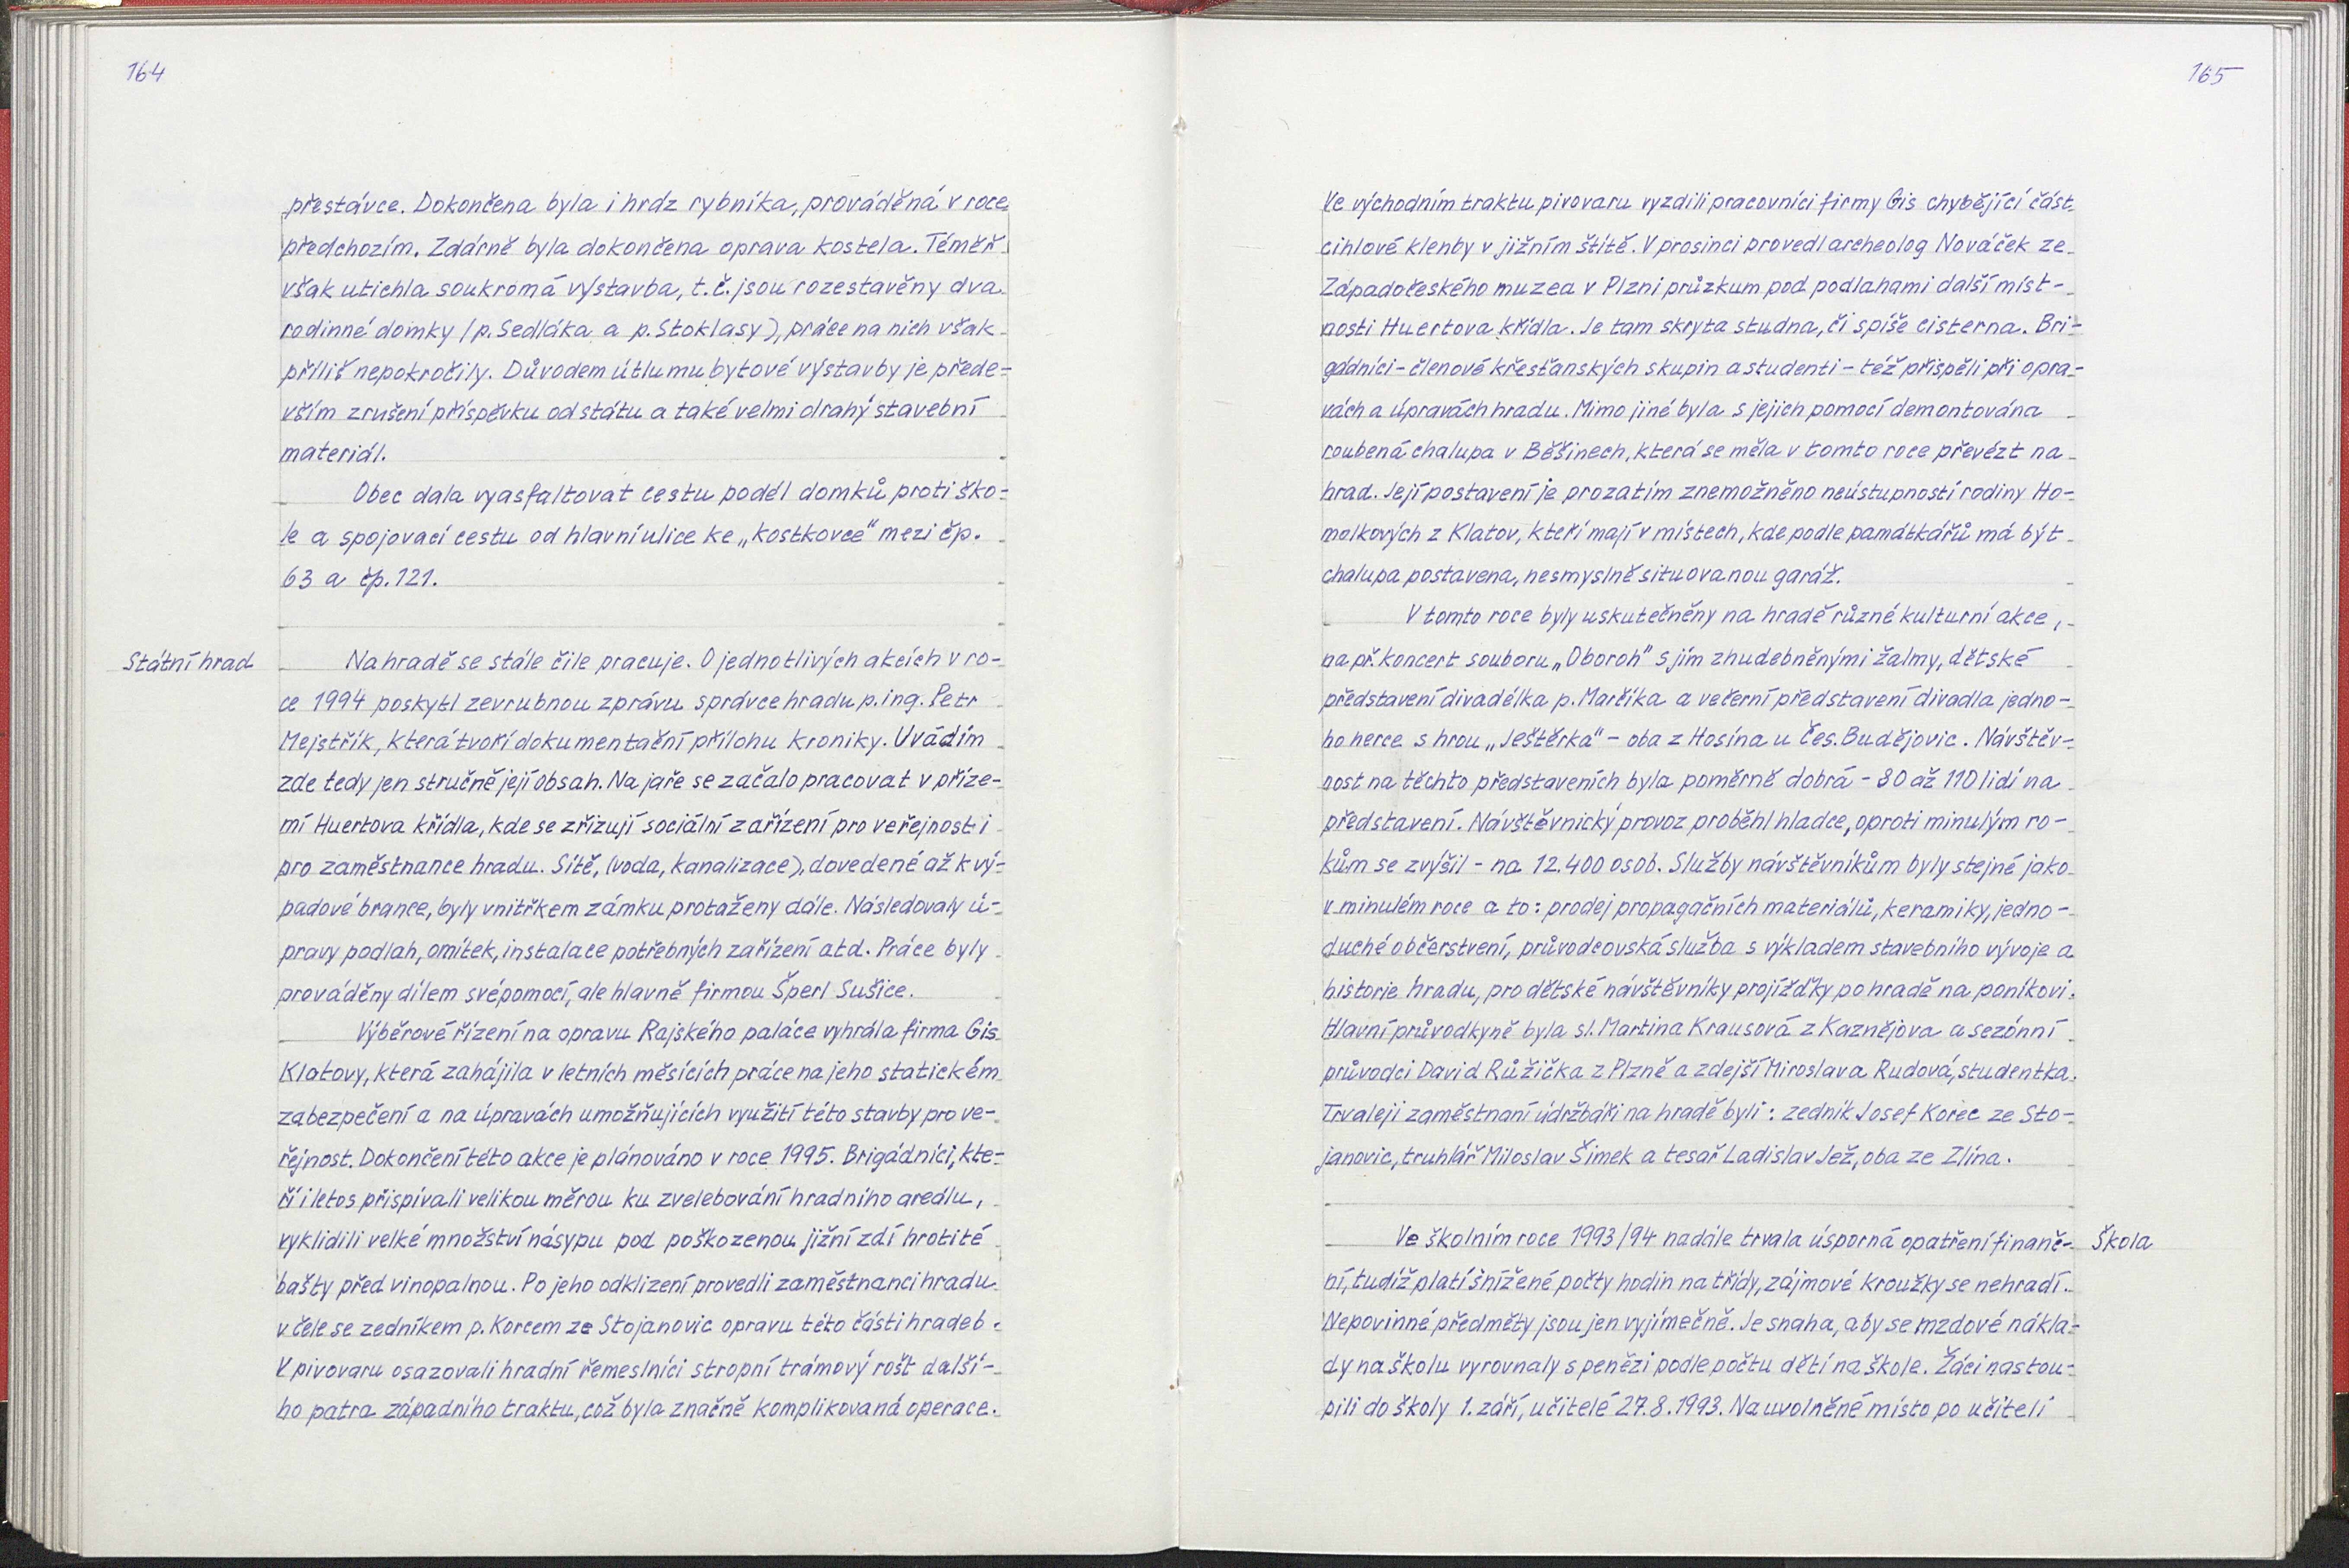 164
přestávce. Dokončena byla i hráz rybníka, prováděná v roce
předchozím. Zdárně byla dokončena oprava kostela. Téměř
však utichla soukromá výstavba, t.č. jsou rozestavěny dva
rodinné domky (p. Sedláka a p. Stoklasy), práce na nich však
příliš nepokročily. Důvodem útlumu bytové výstavby je přede-
vším zrušení příspěvku od státu a také velmi drahý stavební
materiál.
Obec dala vyasfaltovat cestu podél domků proti ško-
le a spojovací cestu od hlavní ulice ke „kostkovce" mezi čp.
63 a čp. 121.
Státní hrad
Na hradě se stále čile pracuje. O jednotlivých akcích v ro-
ce 1994 poskytl zevrubnou zprávu správce hradu p. ing. Petr
Mejstřík, která tvoří dokumentační přílohu kroniky. Uvádím
zde tedy jen stručně její obsah. Na jaře se začalo pracovat v příze-
mí Huertova křídla, kde se zřizují sociální zařízení pro veřejnost i
pro zaměstnance hradu. Sítě, (voda, kanalizace), dovedené až k vý-
padové brance, byly vnitřkem zámku protaženy dále. Následovaly ú-
pravy podlah, omítek, instalace potřebných zařízení atd. Práce byly
prováděny dílem svépomocí, ale hlavně firmou Šperl Sušice.
Výběrové řízení na opravu Rajského paláce vyhrála firma Gis
Klatovy, která zahájila v letních měsících práce na jeho statickém
zabezpečení a na úpravách umožňujících využití této stavby pro ve-
řejnost. Dokončení této akce je plánováno v roce 1995. Brigádníci, kte-
ří i letos přispívali velikou měrou ku zvelebování hradního areálu,
vyklidili velké množství násypu pod poškozenou jižní zdí hrotité
bašty před vinopalnou. Po jeho odklizení provedli zaměstnanci hradu
v čele se zedníkem p. Korcem ze Stojanovic opravu této části hradeb.
V pivovaru osazovali hradní řemeslníci stropní trámový rošt další-
ho patra západního traktu, což byla značně komplikovaná operace.
165
Ve východním traktu pivovaru vyzdili pracovníci firmy Gis chybějící část
cihlové klenby v jižním štítě. V prosinci provedl archeolog Nováček ze
Západočeského muzea v Plzni průzkum pod podlahami další míst-
nosti Huertova křídla. Je tam skryta studna, či spíše cisterna. Bri-
gádníci - členové křesťanských skupin a studenti - též přispěli při opra-
vách a úpravách hradu. Mimo jiné byla s jejich pomocí demontována
roubená chalupa v Běšinech, která se měla v tomto roce převézt na
hrad. Její postavení je prozatím znemožněno neústupností rodiny Ho-
molkových z Klatov, kteří mají v místech, kde podle památkářů má být
chalupa postavena, nesmyslně situovanou garáž.
V tomto roce byly uskutečněny na hradě různé kulturní akce,
např. koncert souboru „Oboroh" s jím zhudebněnými žalmy, dětské
představení divadélka p. Marčíka a večerní představení divadla jedno-
ho herce s hrou „Ještěrka" - oba z Hosína u Čes. Budějovic. Návštěv-
nost na těchto představeních byla poměrně dobrá - 80 až 110 lidí na
představení. Návštěvnický provoz proběhl hladce, oproti minulým ro-
kům se zvýšil - na 12.400 osob. Služby návštěvníkům byly stejné jako
v minulém roce a to: prodej propagačních materiálů, keramiky, jedno-
duché občerstvení, průvodcovská služba s výkladem stavebního vývoje a
historie hradu, pro dětské návštěvníky projížďky po hradě na poníkovi.
Hlavní průvodkyně byla sl. Martina Krausová z Kaznějova a sezónní
průvodci David Růžička z Plzně a zdejší Miroslava Rudová, studentka.
Trvaleji zaměstnaní údržbáři na hradě byli: zedník Josef Korec ze Sto-
janovic, truhlář Miloslav Šimek a tesař Ladislav Jež, oba ze Zlína.
Ve školním roce 1993/94 nadále trvala úsporná opatření finanč-
Škola
ní, tudíž platí snížené počty hodin na třídy, zájmové kroužky se nehradí.
Nepovinné předměty jsou jen vyjímečně. Je snaha, aby se mzdové nákla-
dy na školu vyrovnaly s penězi podle počtu dětí na škole. Žáci nastou-
pili do školy 1. září, učitelé 27.8.1993. Na uvolněné místo po učiteli